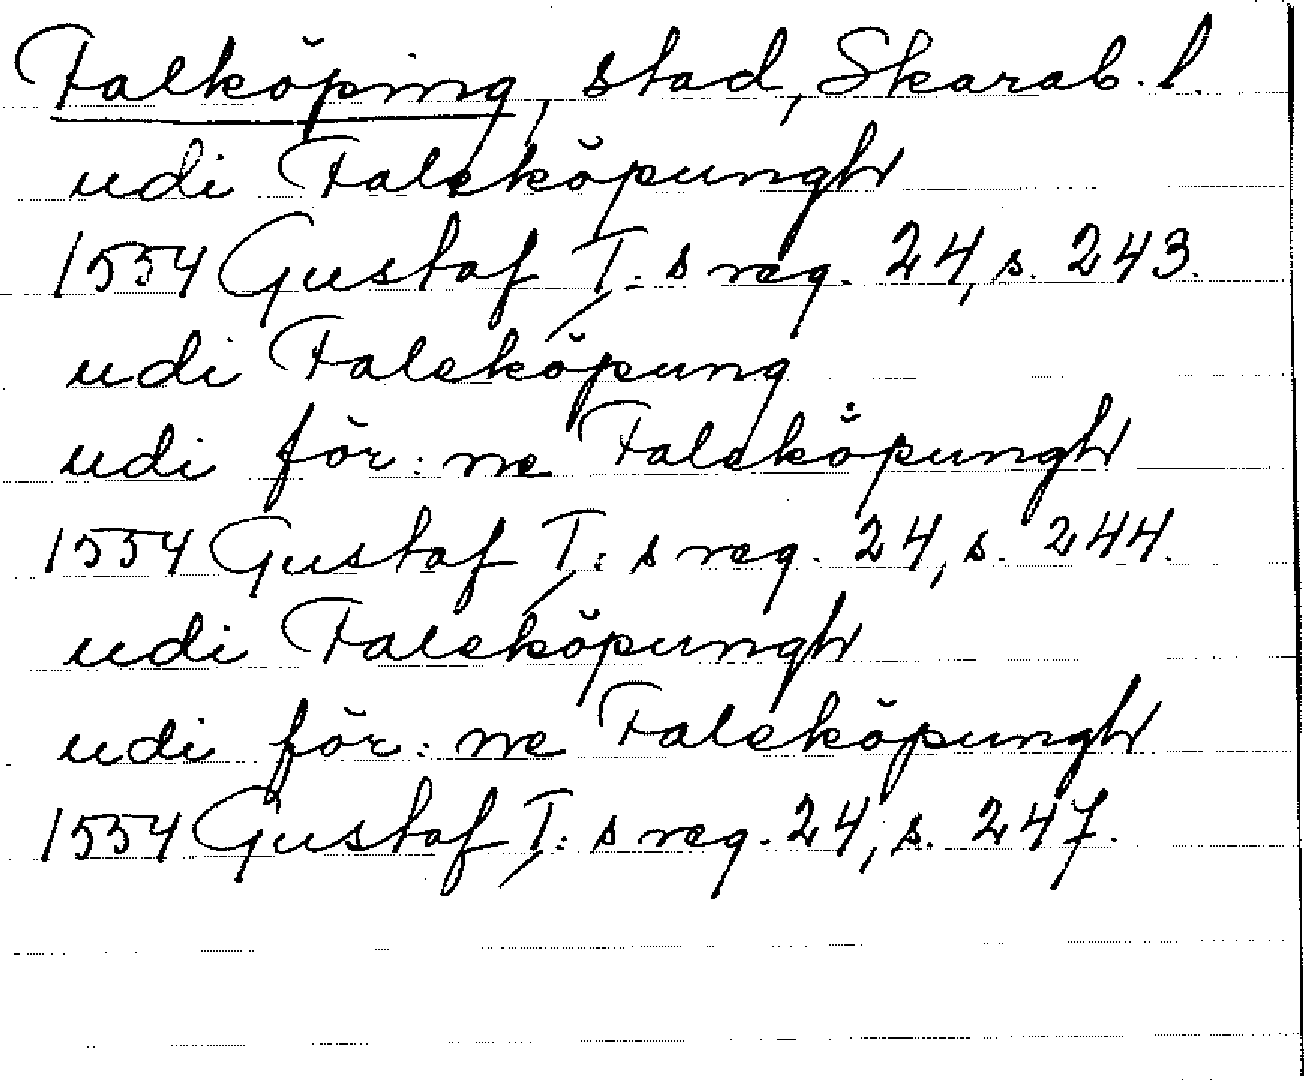 Falköping, stad, Skarab. l.
udi Faleköpungh
1554 Gustaf I: s reg. 24, s. 243.
udi Faleköpung
udi för: ne Faleköpungh
1554 Gustaf I: s reg. 24, s. 244.
udi Faleköpungh
udi för: ne Faleköpungh
1554 Gustaf I: s reg. 24, s. 247.